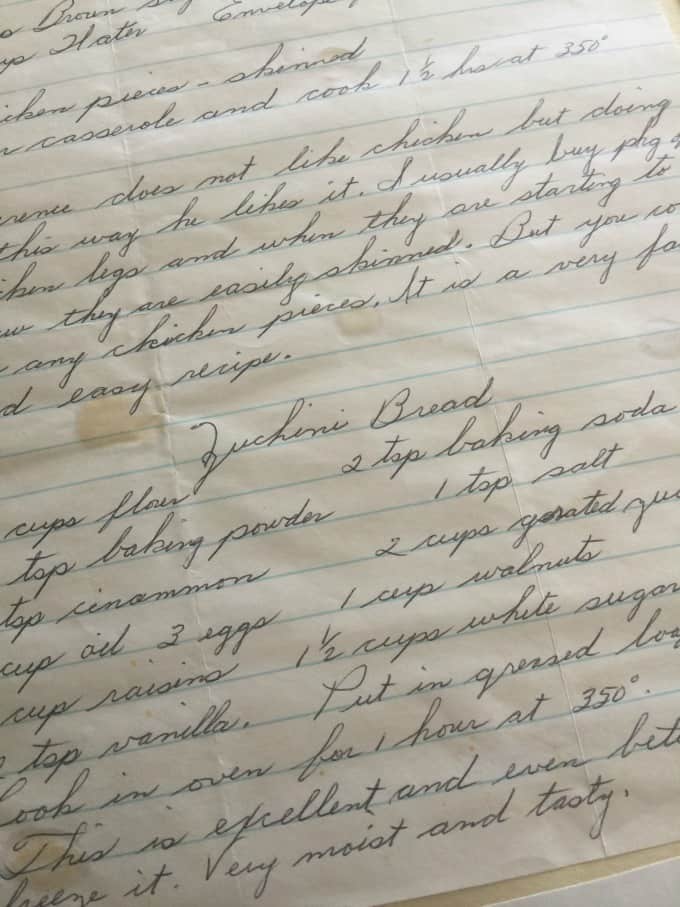 Brown
Water Envelope
pieces - skinned
casserole and cook 1½ hrs at 350°
does not like chicken but doing
this way he likes it. I usually buy pkg
legs and when they are starting to
they are easily skinned. But you
any chicken pieces. It is a very
easy recipe.
Zuchini Bread
cups flour 2 tsp baking soda
tsp baking powder 1 tsp salt
tsp cinammon 2 cups grated
cup oil 3 eggs 1 cup walnuts
cup raisins 1½ cups white sugar
tsp vanilla. Put in greased
Cook in oven for 1 hour at 350°.
This is excellent and even
freeze it. Very moist and tasty.